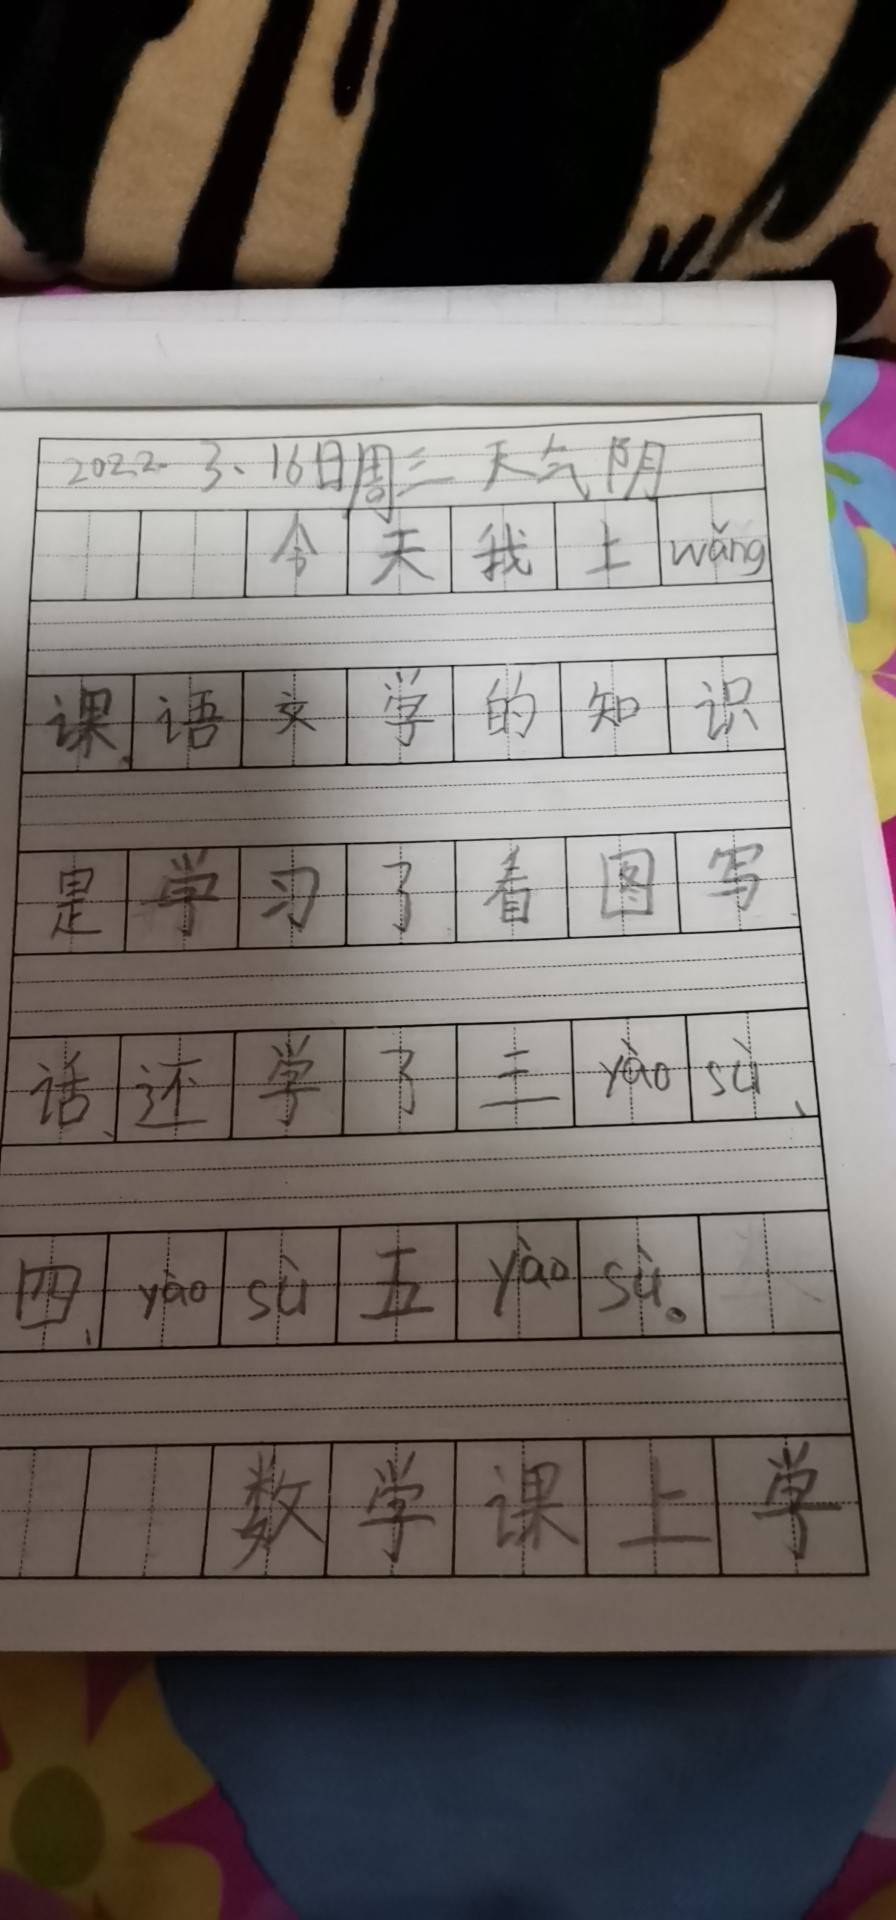 2022.3、16日周三 天气阴
今天我上wǎng
课.语文学的知识
是学习了看图写
话、还学了三yàosù、
四、yàosù五yàosù。
数学课上学